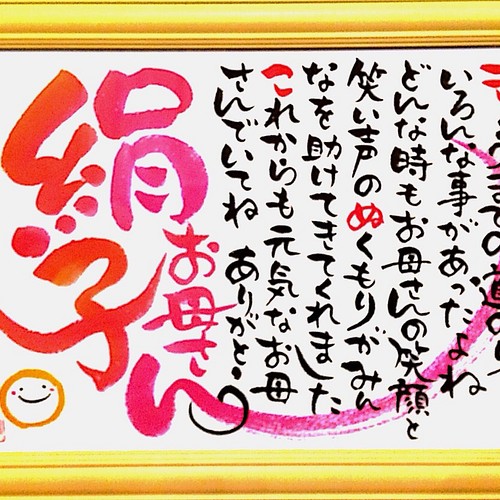 までの道のり
いろんな事があったよね
どんな時もお母さんの笑顔と
笑い声のぬくもりがみん
なを助けてきてくれました
これからも元気なお母
さんでいてね ありがとう
絹子
お母さん